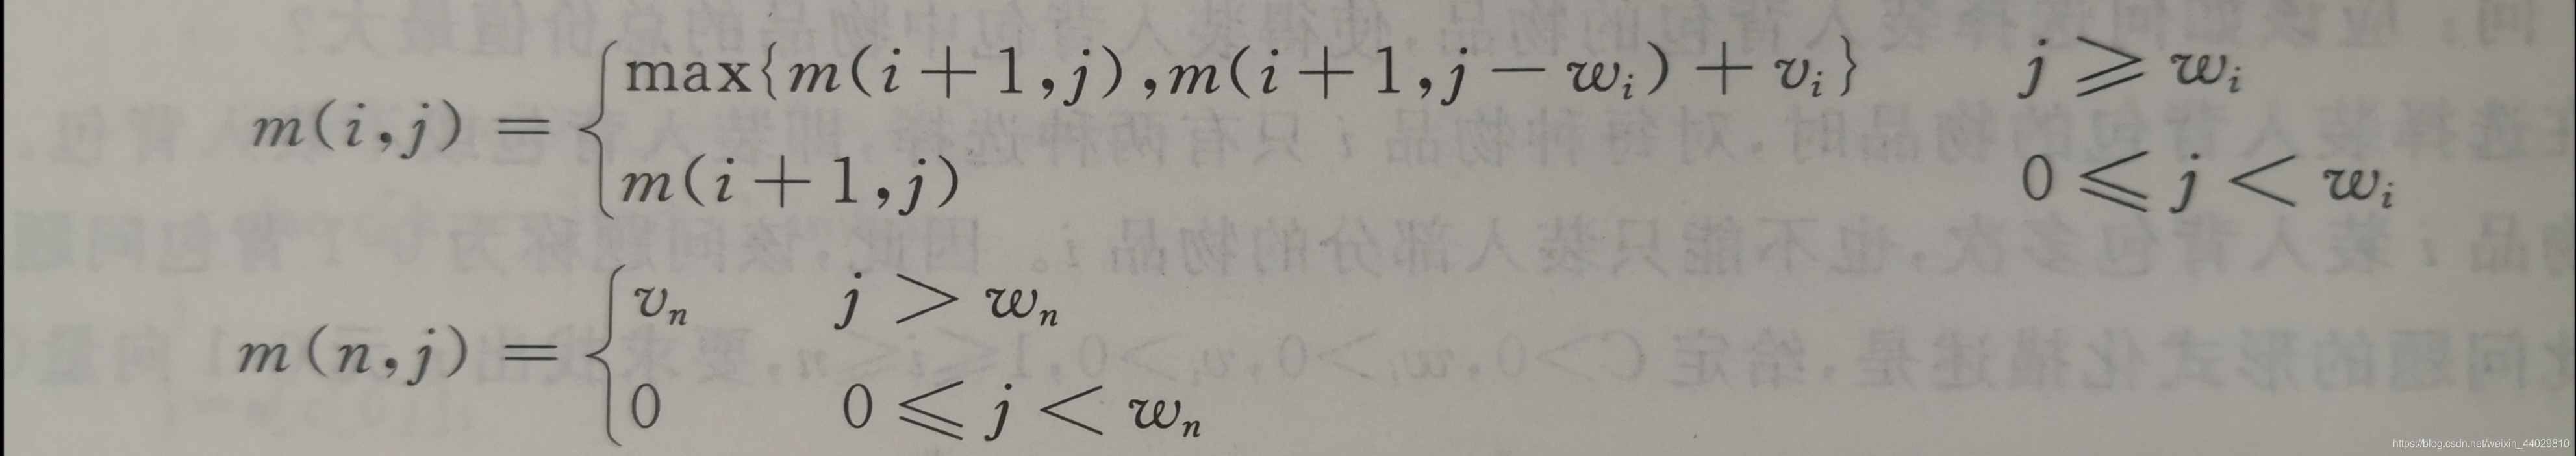 m(i,j) = { max{m(i+1,j),m(i+1,j-wᵢ)+vᵢ} j ⩾ wᵢ
m(i+1,j) 0 ⩽ j < wᵢ
m(n,j) = { vₙ j > wₙ
0 0 ⩽ j < wₙ
https://blog.csdn.net/weixin_44029810